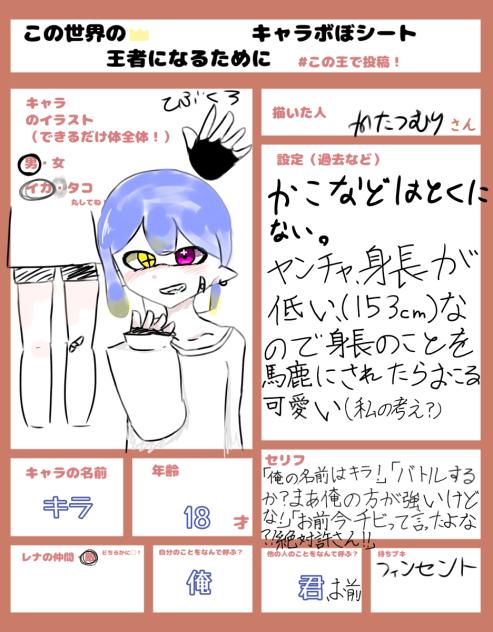 この世界の
王者になるために
キャラボぼシート
#この王で投稿！
キャラ
のイラスト
（できるだけ体全体！）
男・女
イカ・タコ
丸してね
てぶくろ
描いた人
かたつむりさん
設定（過去など）
かこなどはとくに
ない。
ヤンチャ、身長が
低い、(153cm)な
ので身長のことを
馬鹿にされたらおこる
可愛い(私の考え?)
キャラの名前
キラ
年齢
18才
セリフ
「俺の名前はキラ!」「バトルする
か?まあ俺の方が強いけど
な!」「お前今チビって言ったよな
?!絶対許さん!!」
レナの仲間・
どちらかに○！
自分のことをなんて呼ぶ？
俺
他の人のことをなんて呼ぶ？
君、お前
持ちブキ
フィンセント